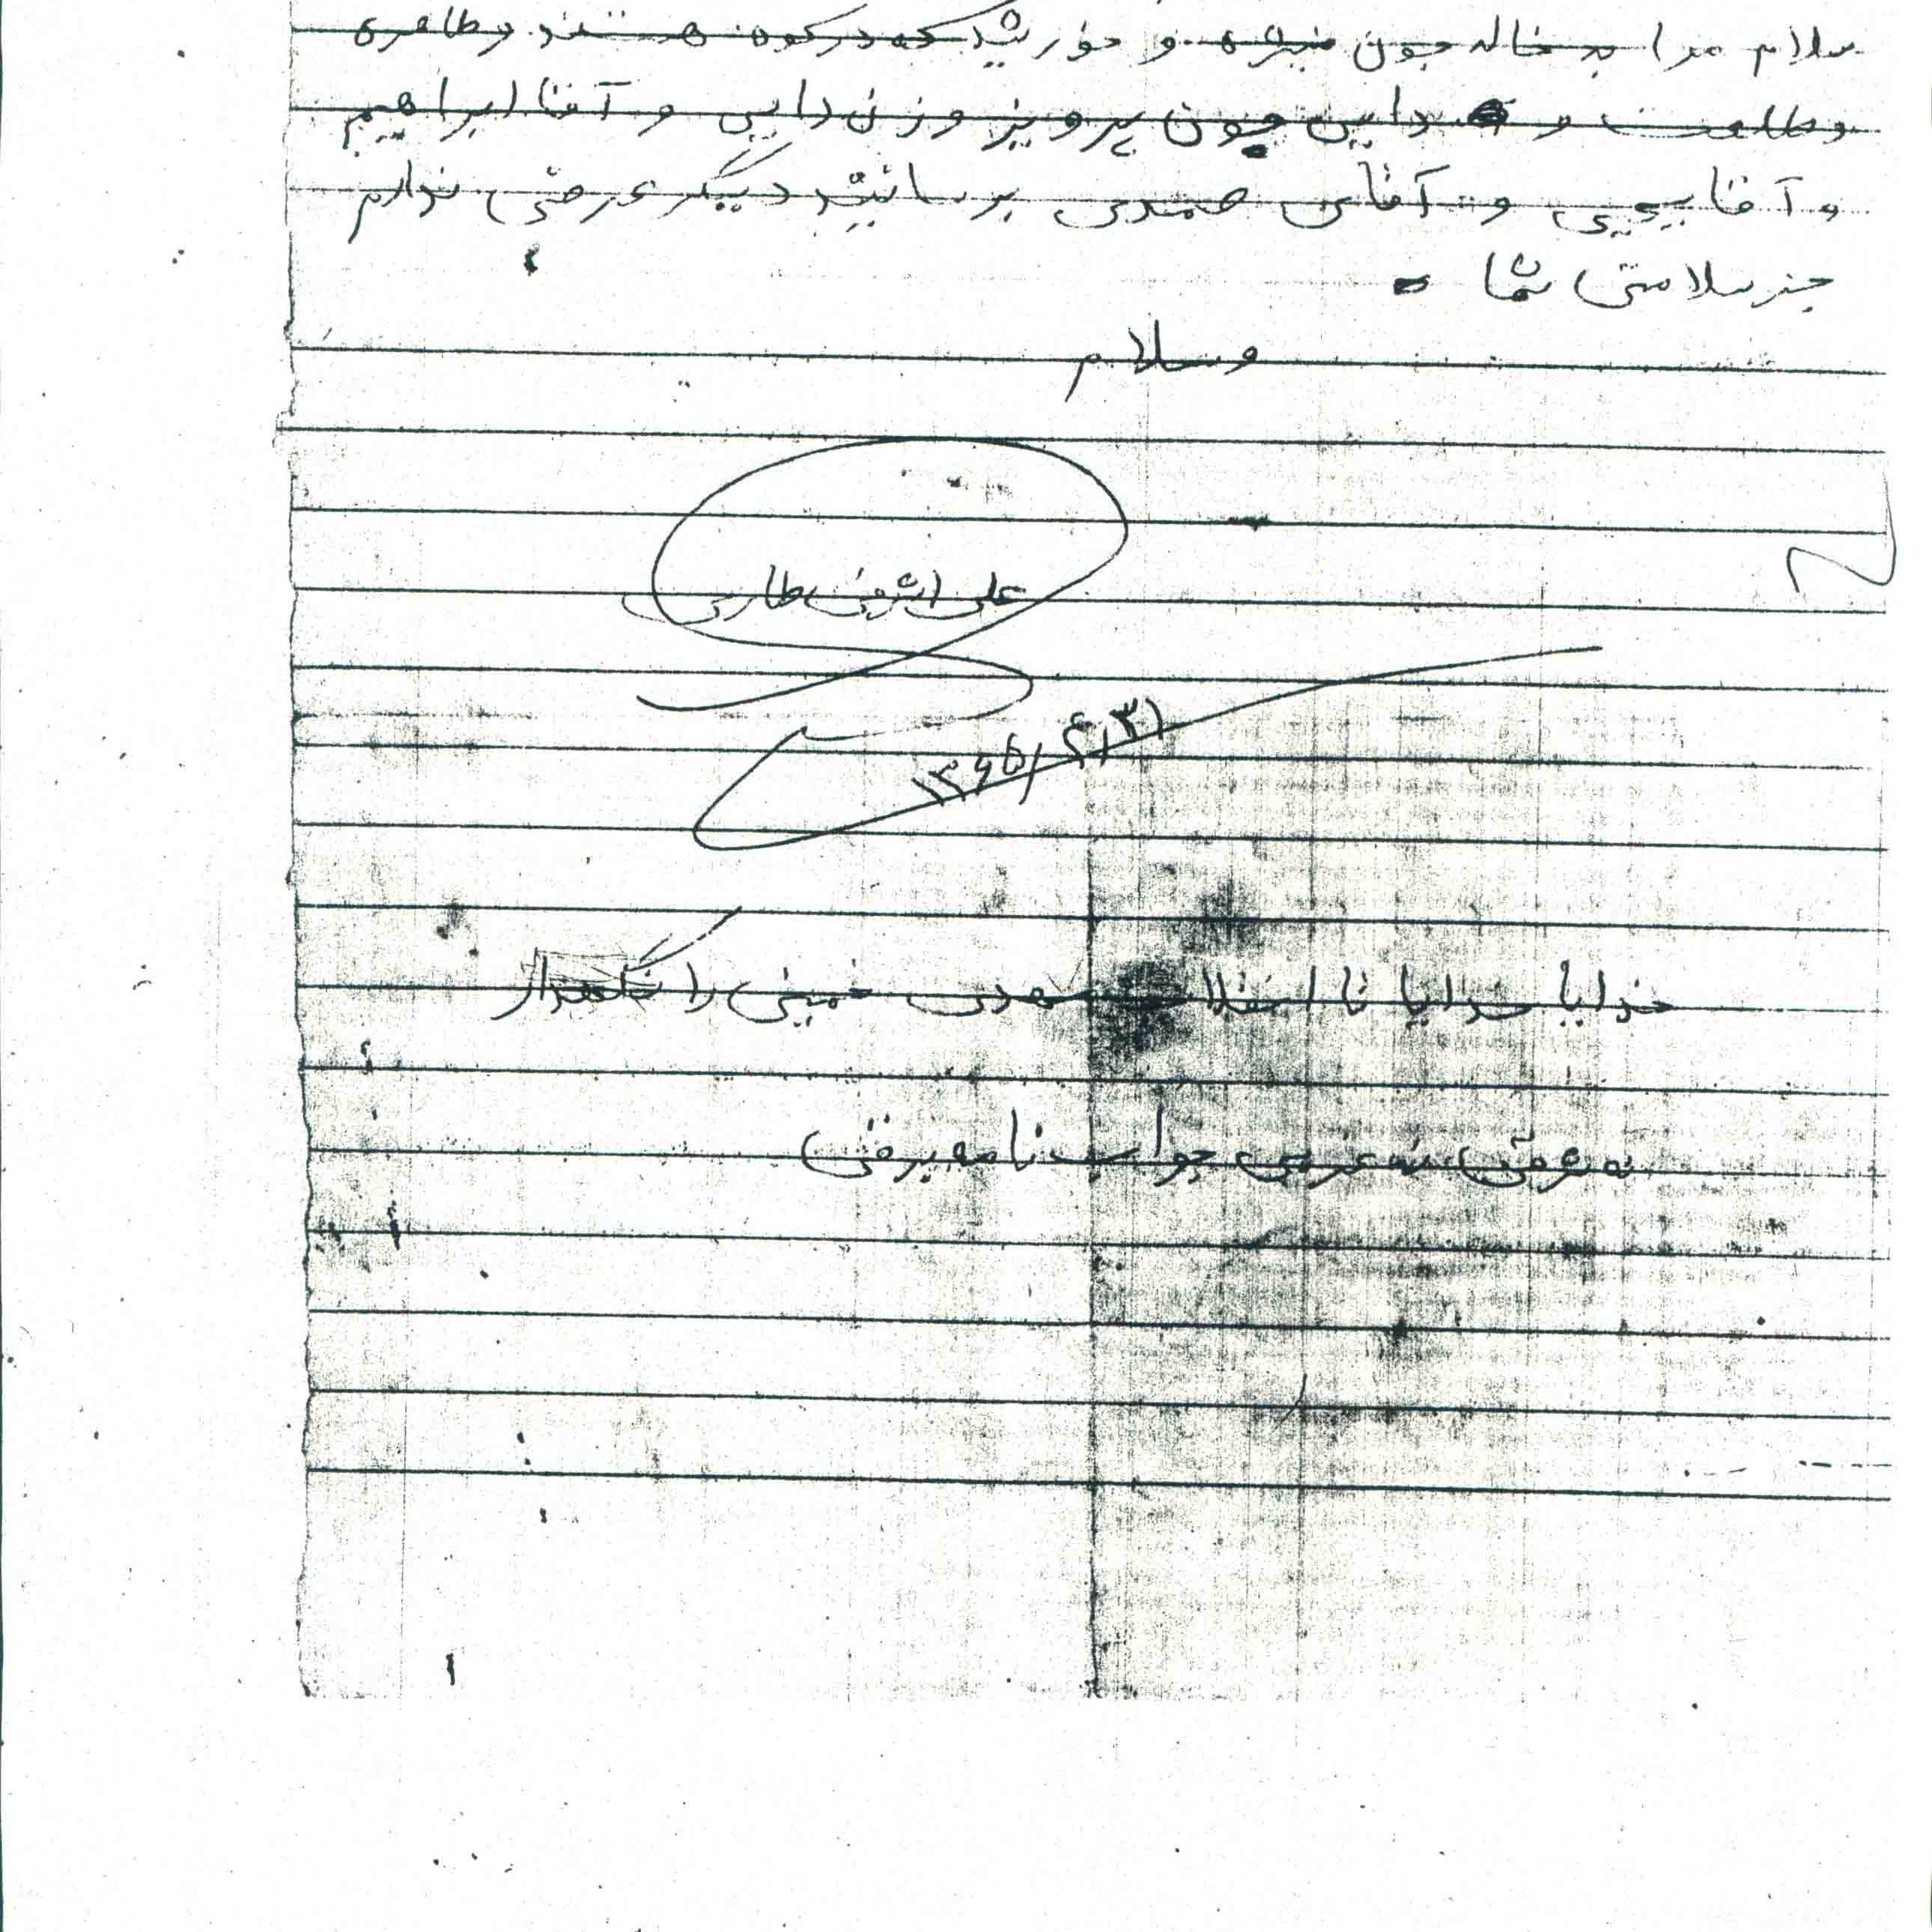 سلام مرا به خاله جون منیره و خورشید که در کوه هستند و طاهره
و طلعت و دایی جون پرویز و زن دایی و آقا ابراهیم
و آقا یحیی و آقای صمدی برسانید دیگر عرضی ندارم
جز سلامتی شما
وسلام
علی اشرفی طاری
۱۳۶۵/۴/۳۱
خدایا خدایا تا انقلاب مهدی خمینی را نگهدار
نه شرقی نه غربی جواب نامه برقی